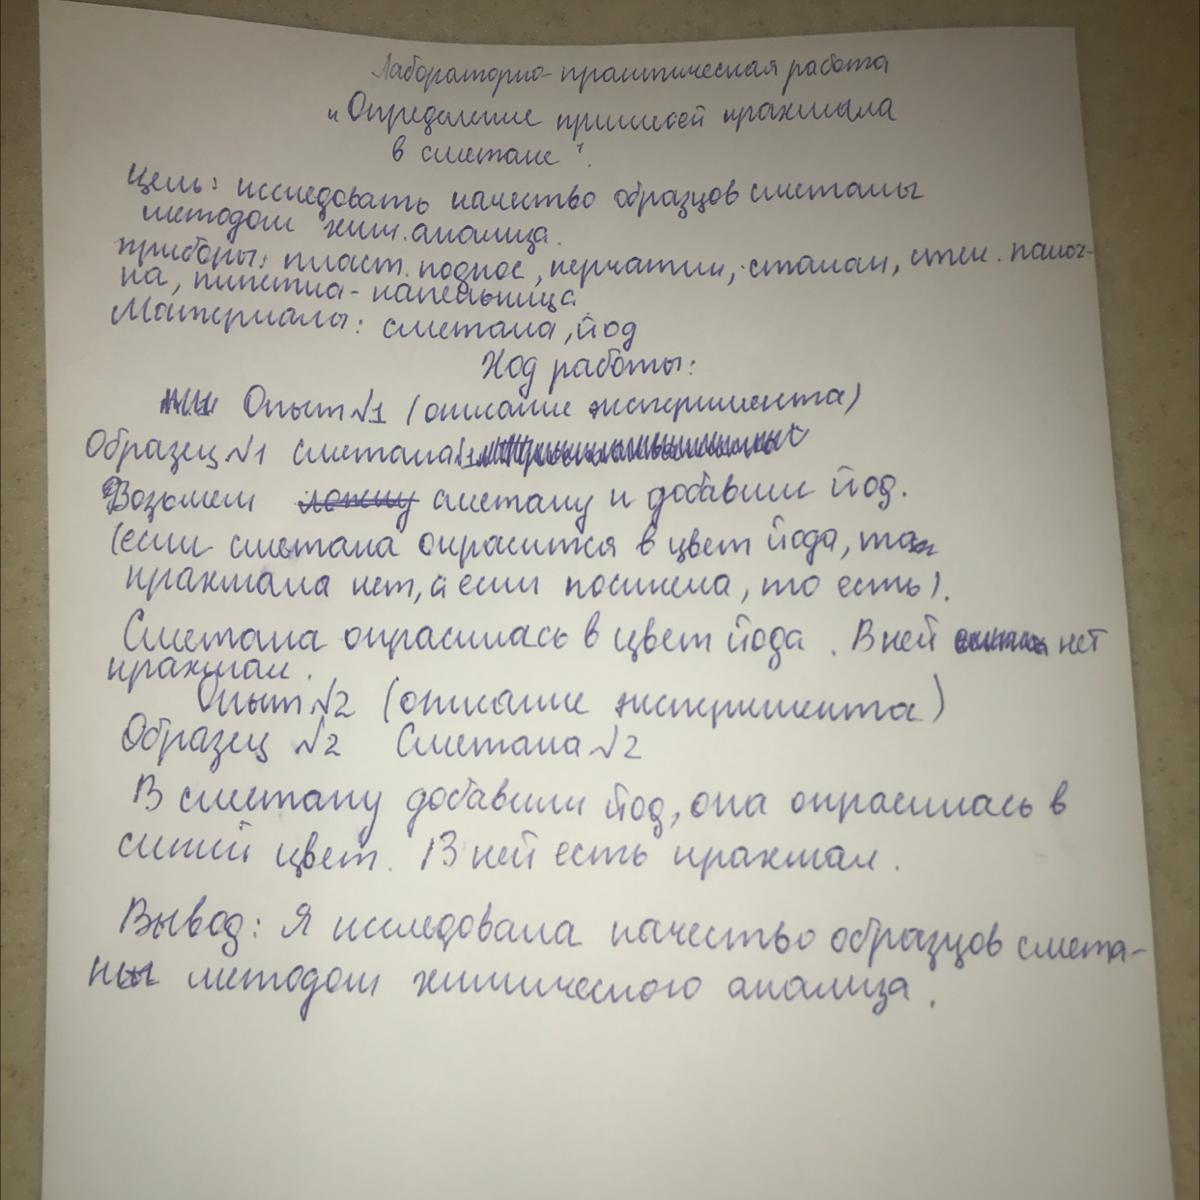 Лабораторно-практическая работа
"Определение примесей крахмала
в сметане".
цель: исследовать качество образцов сметаны
методом хим. анализа.
приборы: пласт. поднос, перчатки, стакан, стек. палоч-
ка, пипетка-капельница
Материалы: сметана, йод
Ход работы:
Опыт №1 (описание эксперимента)
Образец №1 сметана №1
Возьмем сметану и добавим йод.
(если сметана окрасится в цвет йода, то
крахмала нет, а если посинела, то есть).
Сметана окрасилась в цвет йода. В ней нет
крахмал.
Опыт №2 (описание эксперимента)
Образец №2 Сметана №2
В сметану добавили йод, она окрасилась в
синий цвет. В ней есть крахмал.
Вывод: Я исследовала качество образцов смета-
ны методом химического анализа.